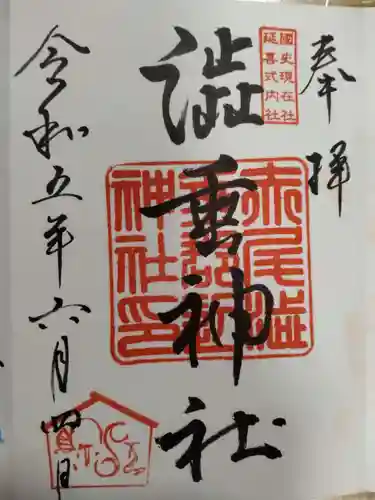 奉拝
國史現在社
延喜式内社
澁垂神社
赤尾澁垂郡辺神社印
令和五年六月四日